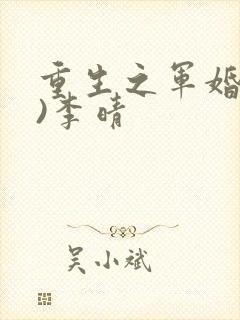 重生之军婚
)李晴
吴小斌